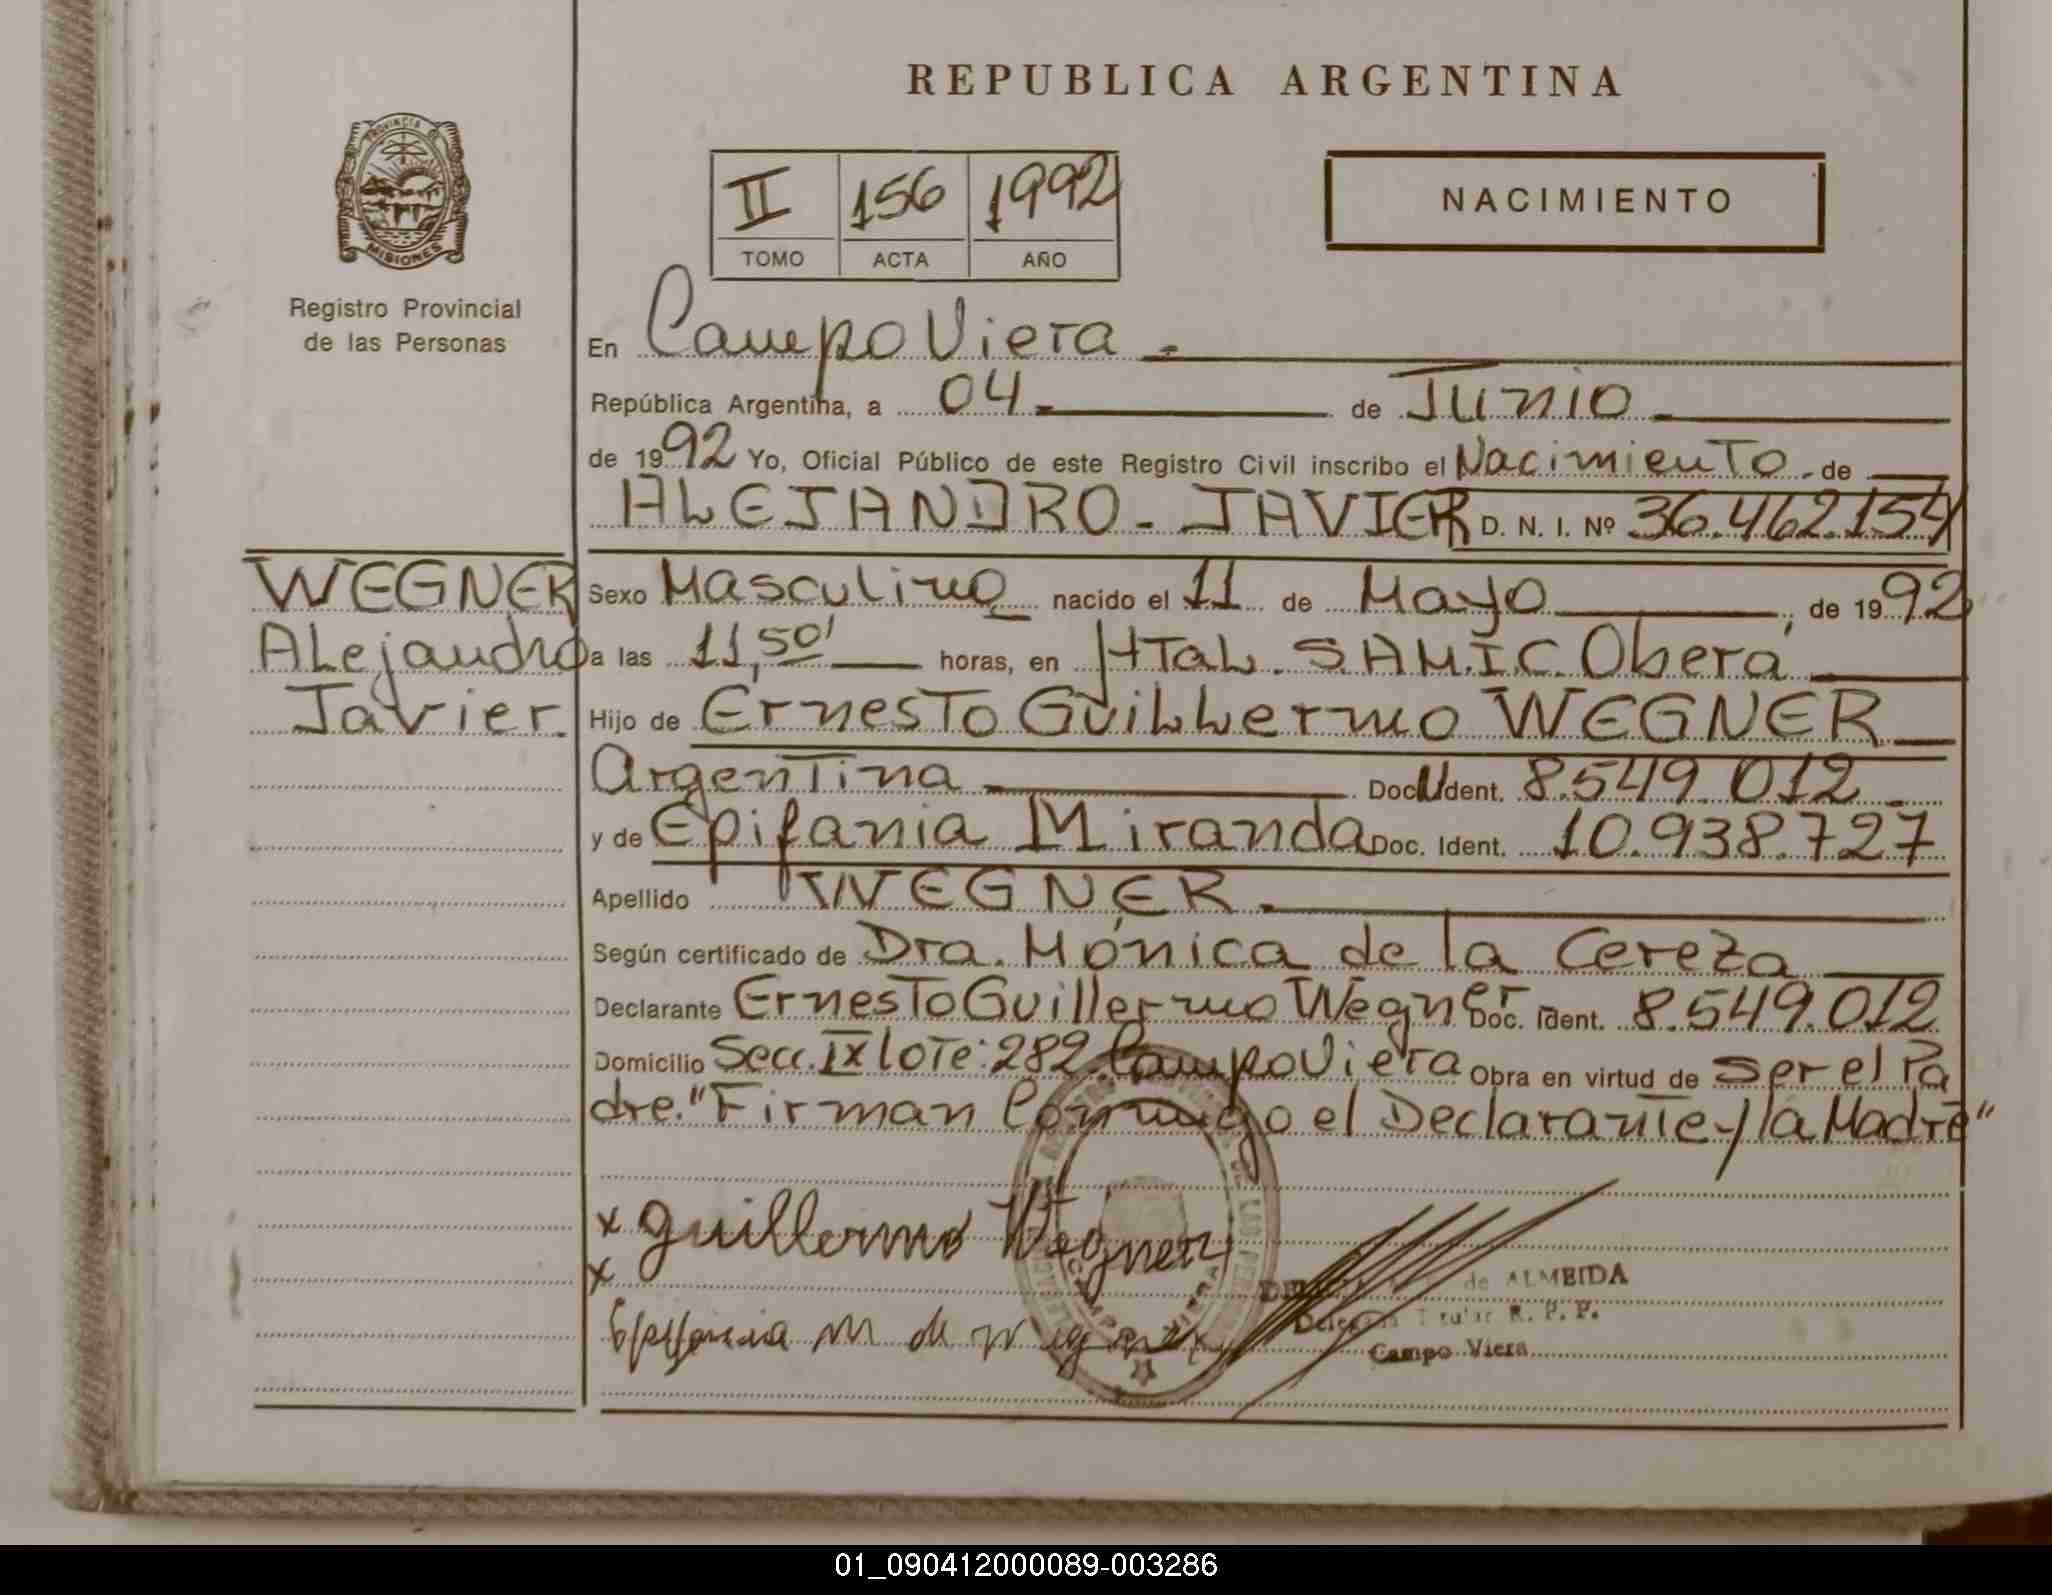 REPUBLICA ARGENTINA
PROVINCIA DE
MISIONES
Registro Provincial
de las Personas
II 156 1992
TOMO ACTA AÑO
NACIMIENTO
En Campo Viera.
República Argentina, a 04 de Junio
de 1992 Yo, Oficial Público de este Registro Civil inscribo el Nacimiento de
ALEJANDRO - JAVIER D. N. I. Nº 36.462.154
WEGNER
Alejandro
Javier
Sexo Masculino nacido el 11 de Mayo, de 1992
a las 11,50' horas, en HTaL. S.A.M.I.C. Oberá
Hijo de Ernesto Guillermo WEGNER
Argentina Doc. Ident. 8.549.012
y de Epifania Miranda Doc. Ident. 10.938.727
Apellido WEGNER.
Según certificado de Dra. Mónica de la Cereza
Declarante Ernesto Guillermo Wegner Doc. Ident. 8.549.012
Domicilio Secc. IX lote: 282. Campo Viera Obra en virtud de ser el Pa
dre. "Firman Conmigo el Declarante y la Madre"
x Guillermo Wegner
x
Epifania M de Wegner
de ALMEIDA
Delegada Titular R. P. P.
Campo Viera
CAMPO VIERA
01_090412000089-003286